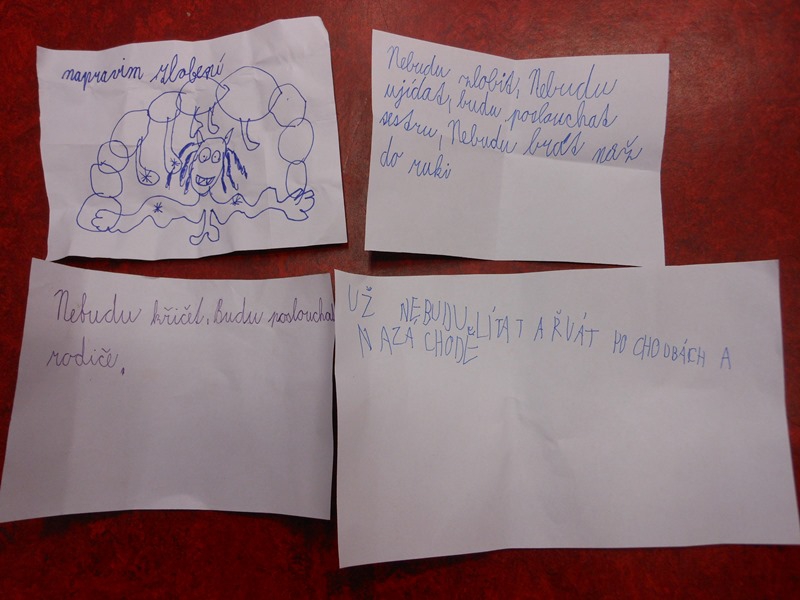 napravim zlobení
Nebudu zlobit, Nebudu
ujídat, budu poslouchat
sestru, Nebudu brát nůž
do ruki
Nebudu křičet. Budu poslouchat
rodiče.
UŽ NEBUDU LÍTAT A ŘVÁT PO CHODBÁCH A
NAZACHODĚ